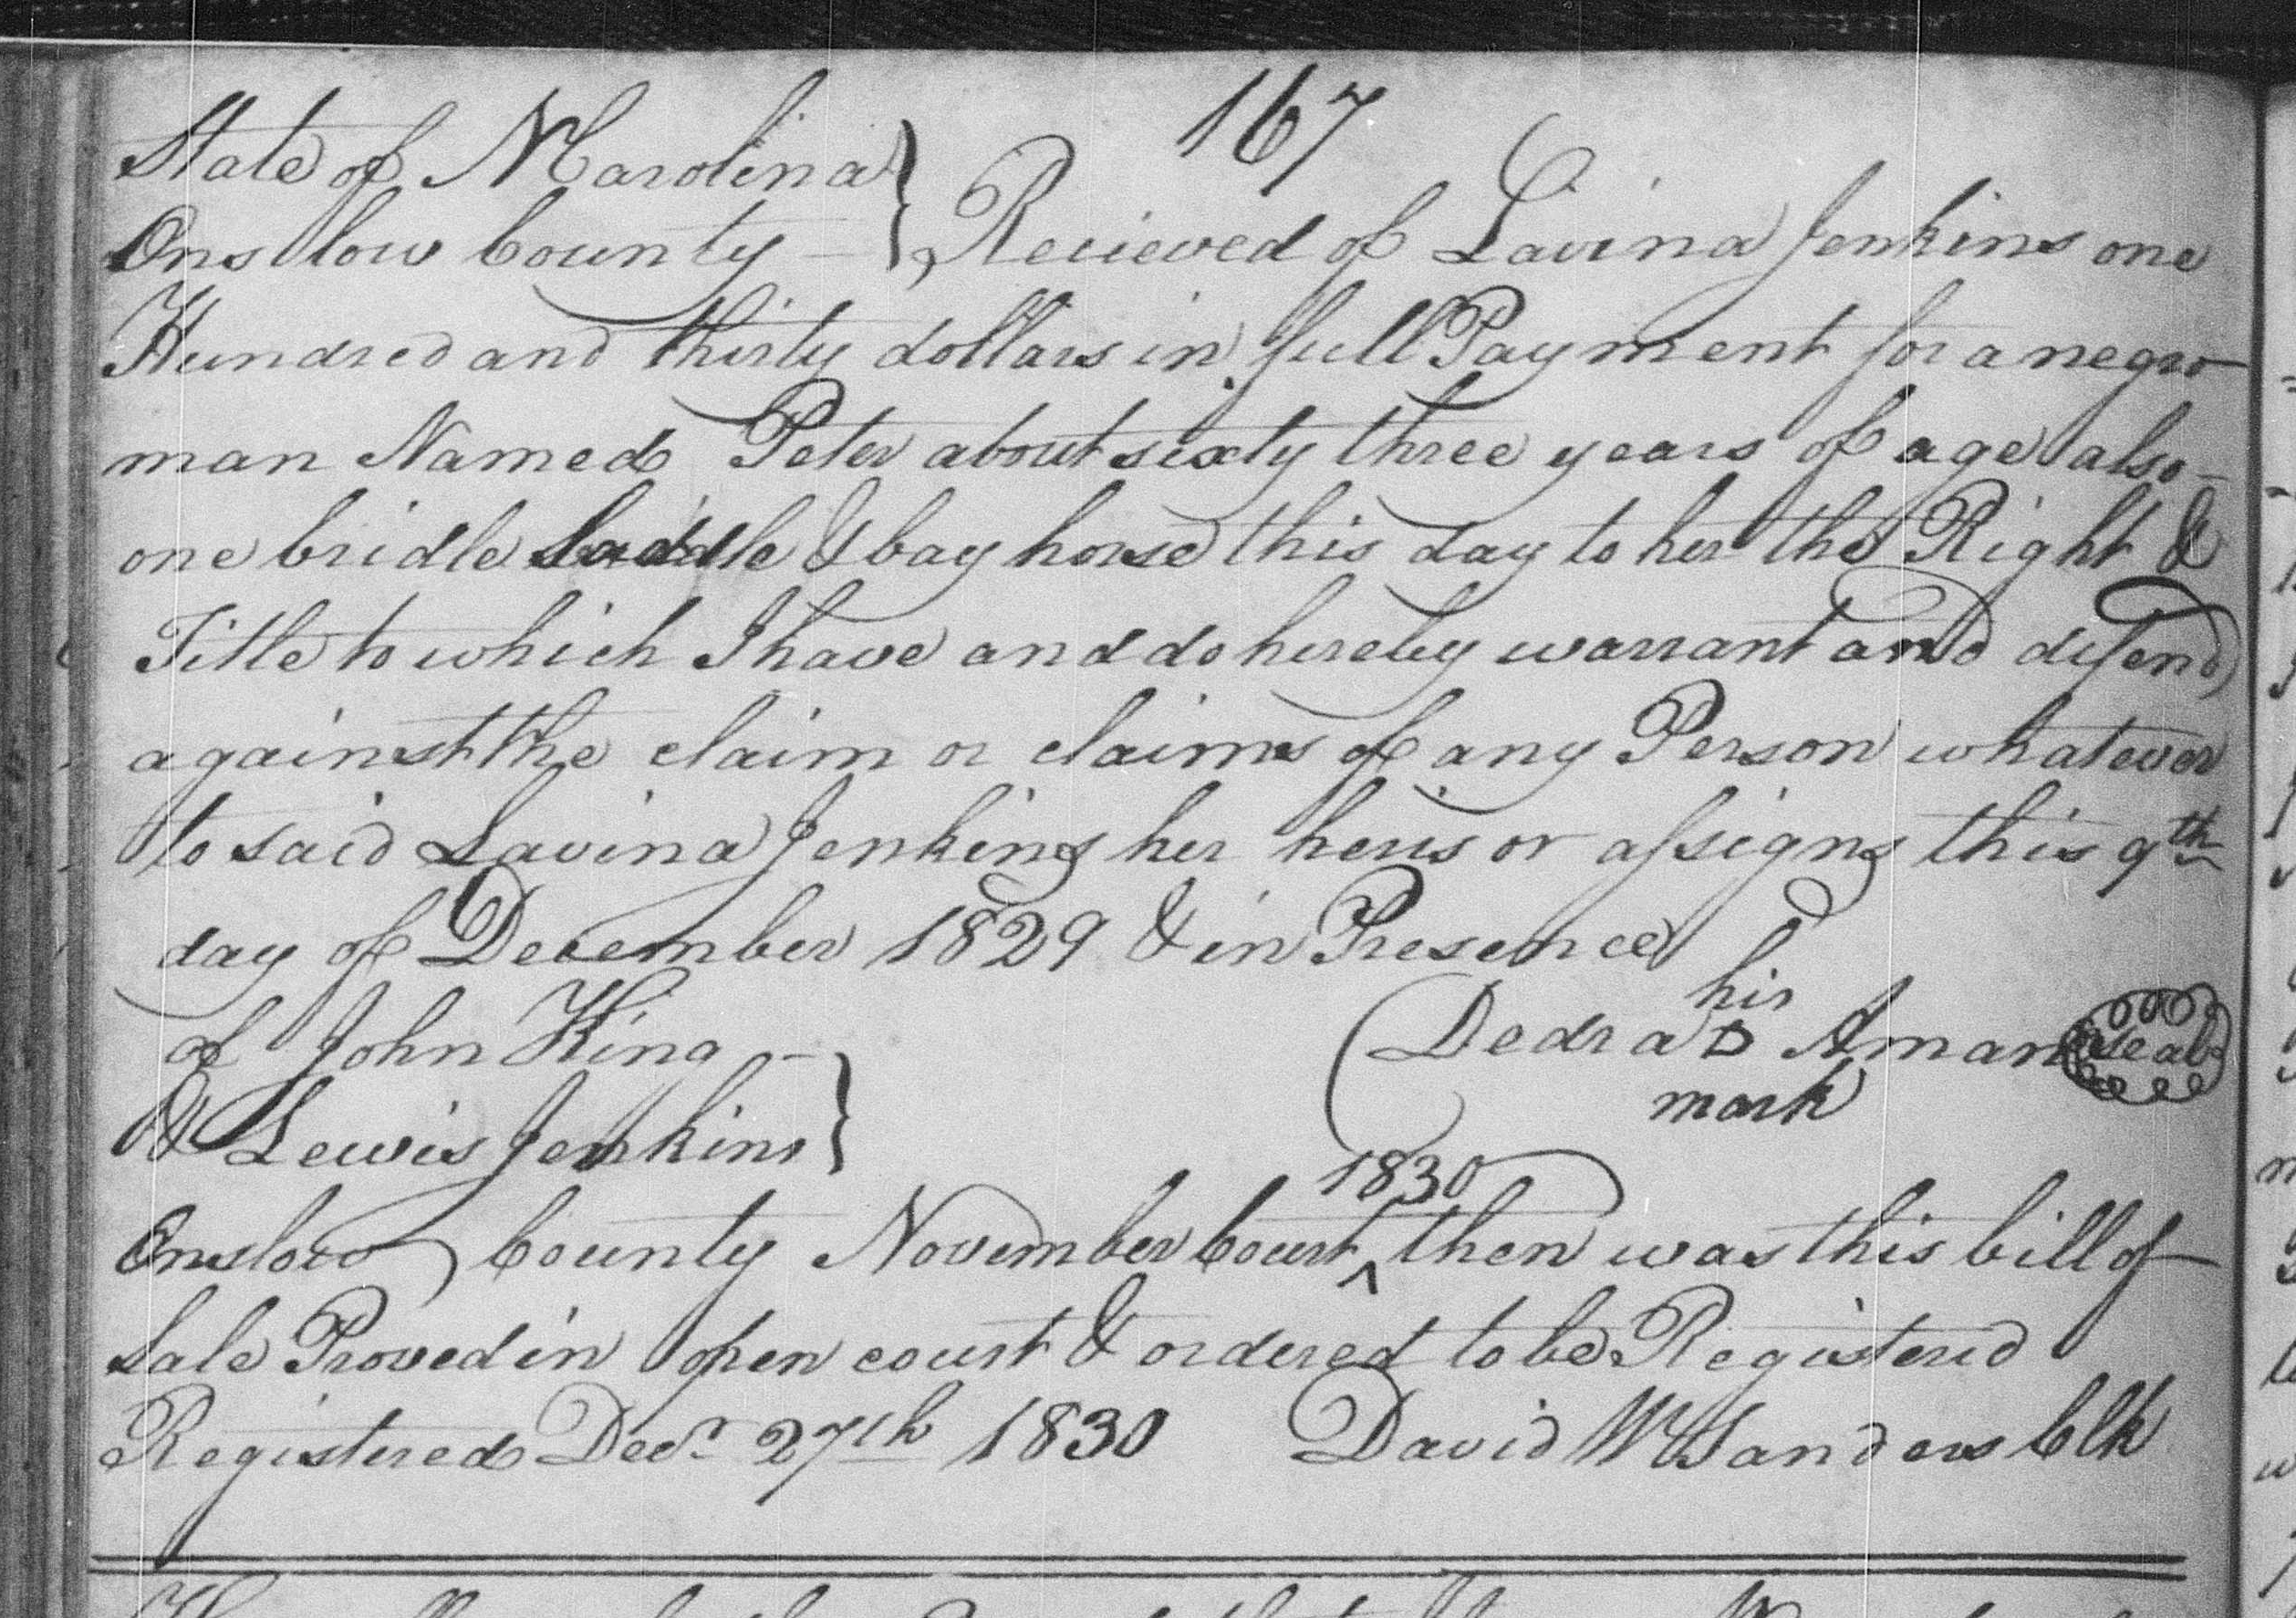 167
State of N Carolina }
Onslow County — } Recieved of Lavina Jenkins one
Hundred and thirty dollars in full Payment for a negro
man Named Peter about sixty three years of age also
one bridle Saddle & bay horse this day to her the Right &
Title to which I have and do hereby warrant and defend
against the claim or claims of any Person whatever
to said Lavina Jenkins her heirs or assigns this 9th
day of December 1829 & in Presence
his
of John King — Dedra D Aman Seal
mark
& Lewis Jenkins }
1830
Onslow County November Court ^ then was this bill of
Sale Proved in open court & ordered to be Registered
Registered Decr 27th 1830 David W Sanders Clk